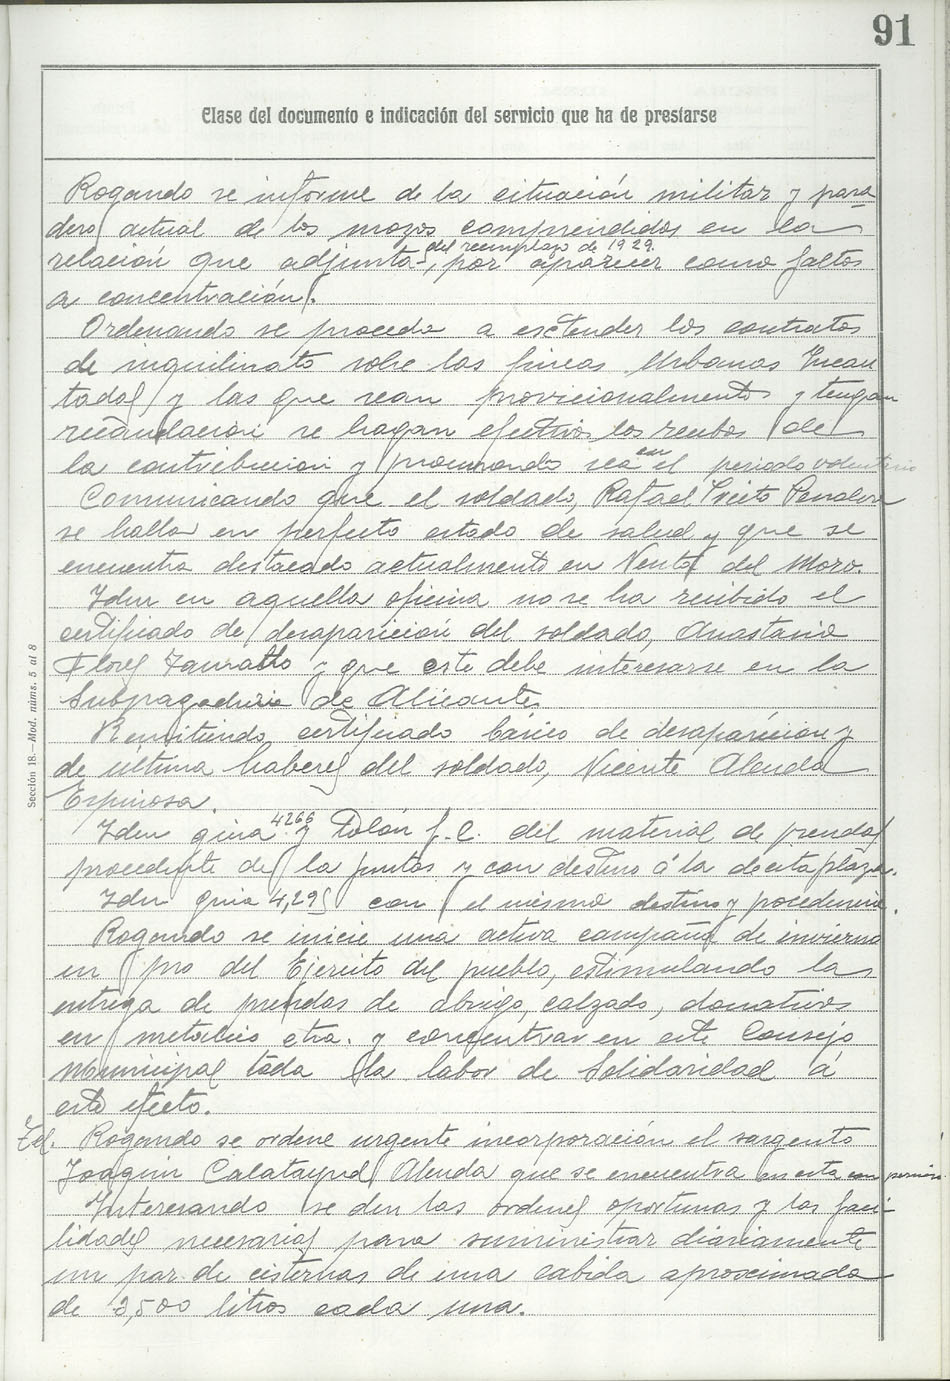 91
Clase del documento e indicación del servicio que ha de prestarse
Rogando se informe de la situación militar y para
dero actual de los mozos comprendidos en la
del reemplazo de 1929.
relación que adjunta, por aparecer como faltos
a concentración.
Ordenando se proceda a esctender los contratos
de inquilinato sobre las fincas Urbanas Incau
tadas y las que sean provicionalmente y tengan
recaudación se hagan efectivos los recibos de
la contribución y procurando sea en el periodo voluntario
Comunicando que el soldado, Rafael Prieto Penalva
se halla en perfecto estado de salud y que se
encuentra destacado actualmente en Venta del Moro.
Idem en aquella oficina no se ha recibido el
certificado de desaparición del soldado, Anastasio
Flores y que este debe interesarse en la
Subpagaduria de Alicante.
Remitiendo certificado básico de desaparición y
de ultima haberes del soldado, Vicente Alenda
Espinosa.
Idem guia 4266 y Talón f.c. del material de prendas
procedente de la junta y con destino á la de esta plaza.
Idem guia 4,295 con el mismo destino y procedencia.
Rogando se inicie una activa campaña de invierno
en pro del Ejercito del pueblo, estimulando la
entrega de prendas de abrigo, calzado, donativos
en metalico, etra. y concentrar en este Consejo
Municipal toda la labor de Solidaridad á
este efecto.
Tel. Rogando se ordene urgente incorporación el sargento
Joaquin Calatayud Alenda que se encuentra en esta con permiso
Interesando se den las ordenes oportunas y las faci-
lidades necesarias para suministrar diariamente
un par de cisternas de una cabida aproximada
de 3,500 litros cada una.
Sección 18.—Mod. núms. 5 al 8